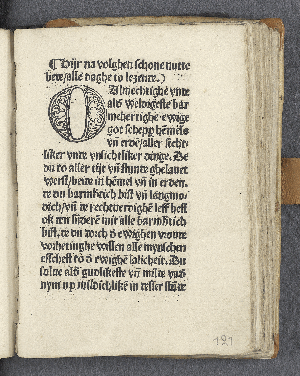 ¶ Hijr na volghen schone nutte
bete/alle daghe to lezene.)
O Almechtighe vnte
als weldigeste bar
mehertighe ewige
got schepp hēmels
vn̄ erde/aller sicht-
liker vnte vnsichtliker dinge. De
du to aller tijt vn̄ stunte ghelauet
werst/beite in hēmel vn̄ in erden.
te du barmhertich bist vn̄ langmo-
dich/vn̄ te rechtverdighē leff hefst
ok ten sūdere mit alle barmhertich
bist. te du dorch d ewighen vroute
vorhetinghe willen alle mynschen
esschest to d ewighē salicheit. Du
solue als gudlikeste vn̄ milte vad
nym up mildichlikē in tesser stūte
121